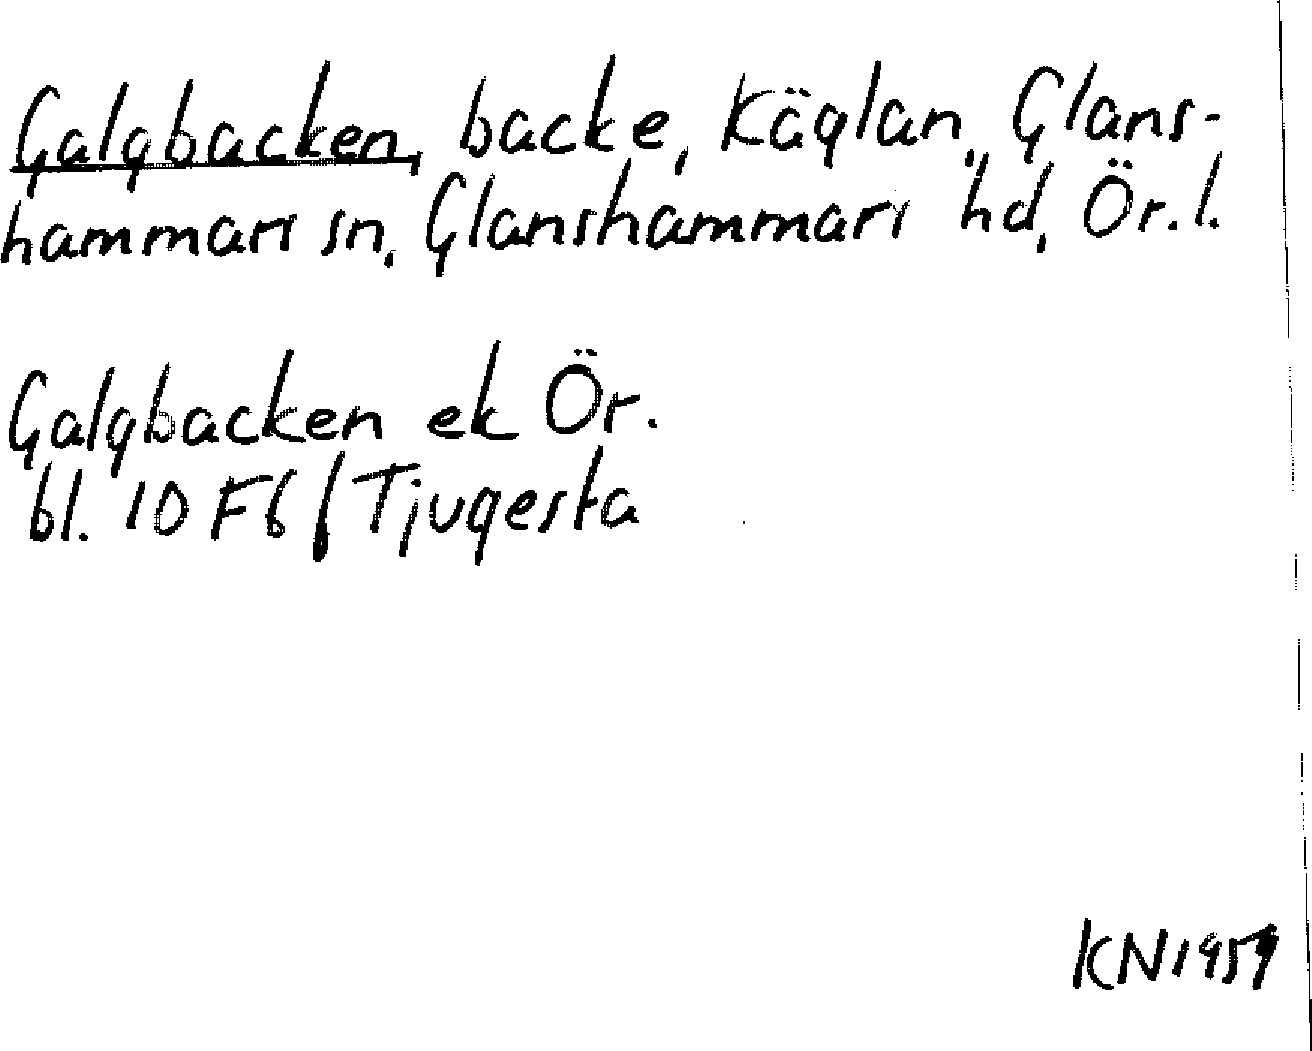 Galgbacken, backe, Käglan, Glans-
hammars sn, Glanshammars hd, Ör. l.
Galgbacken ek Ör.
bl. 10 F6 / Tjugesta
KN 1959